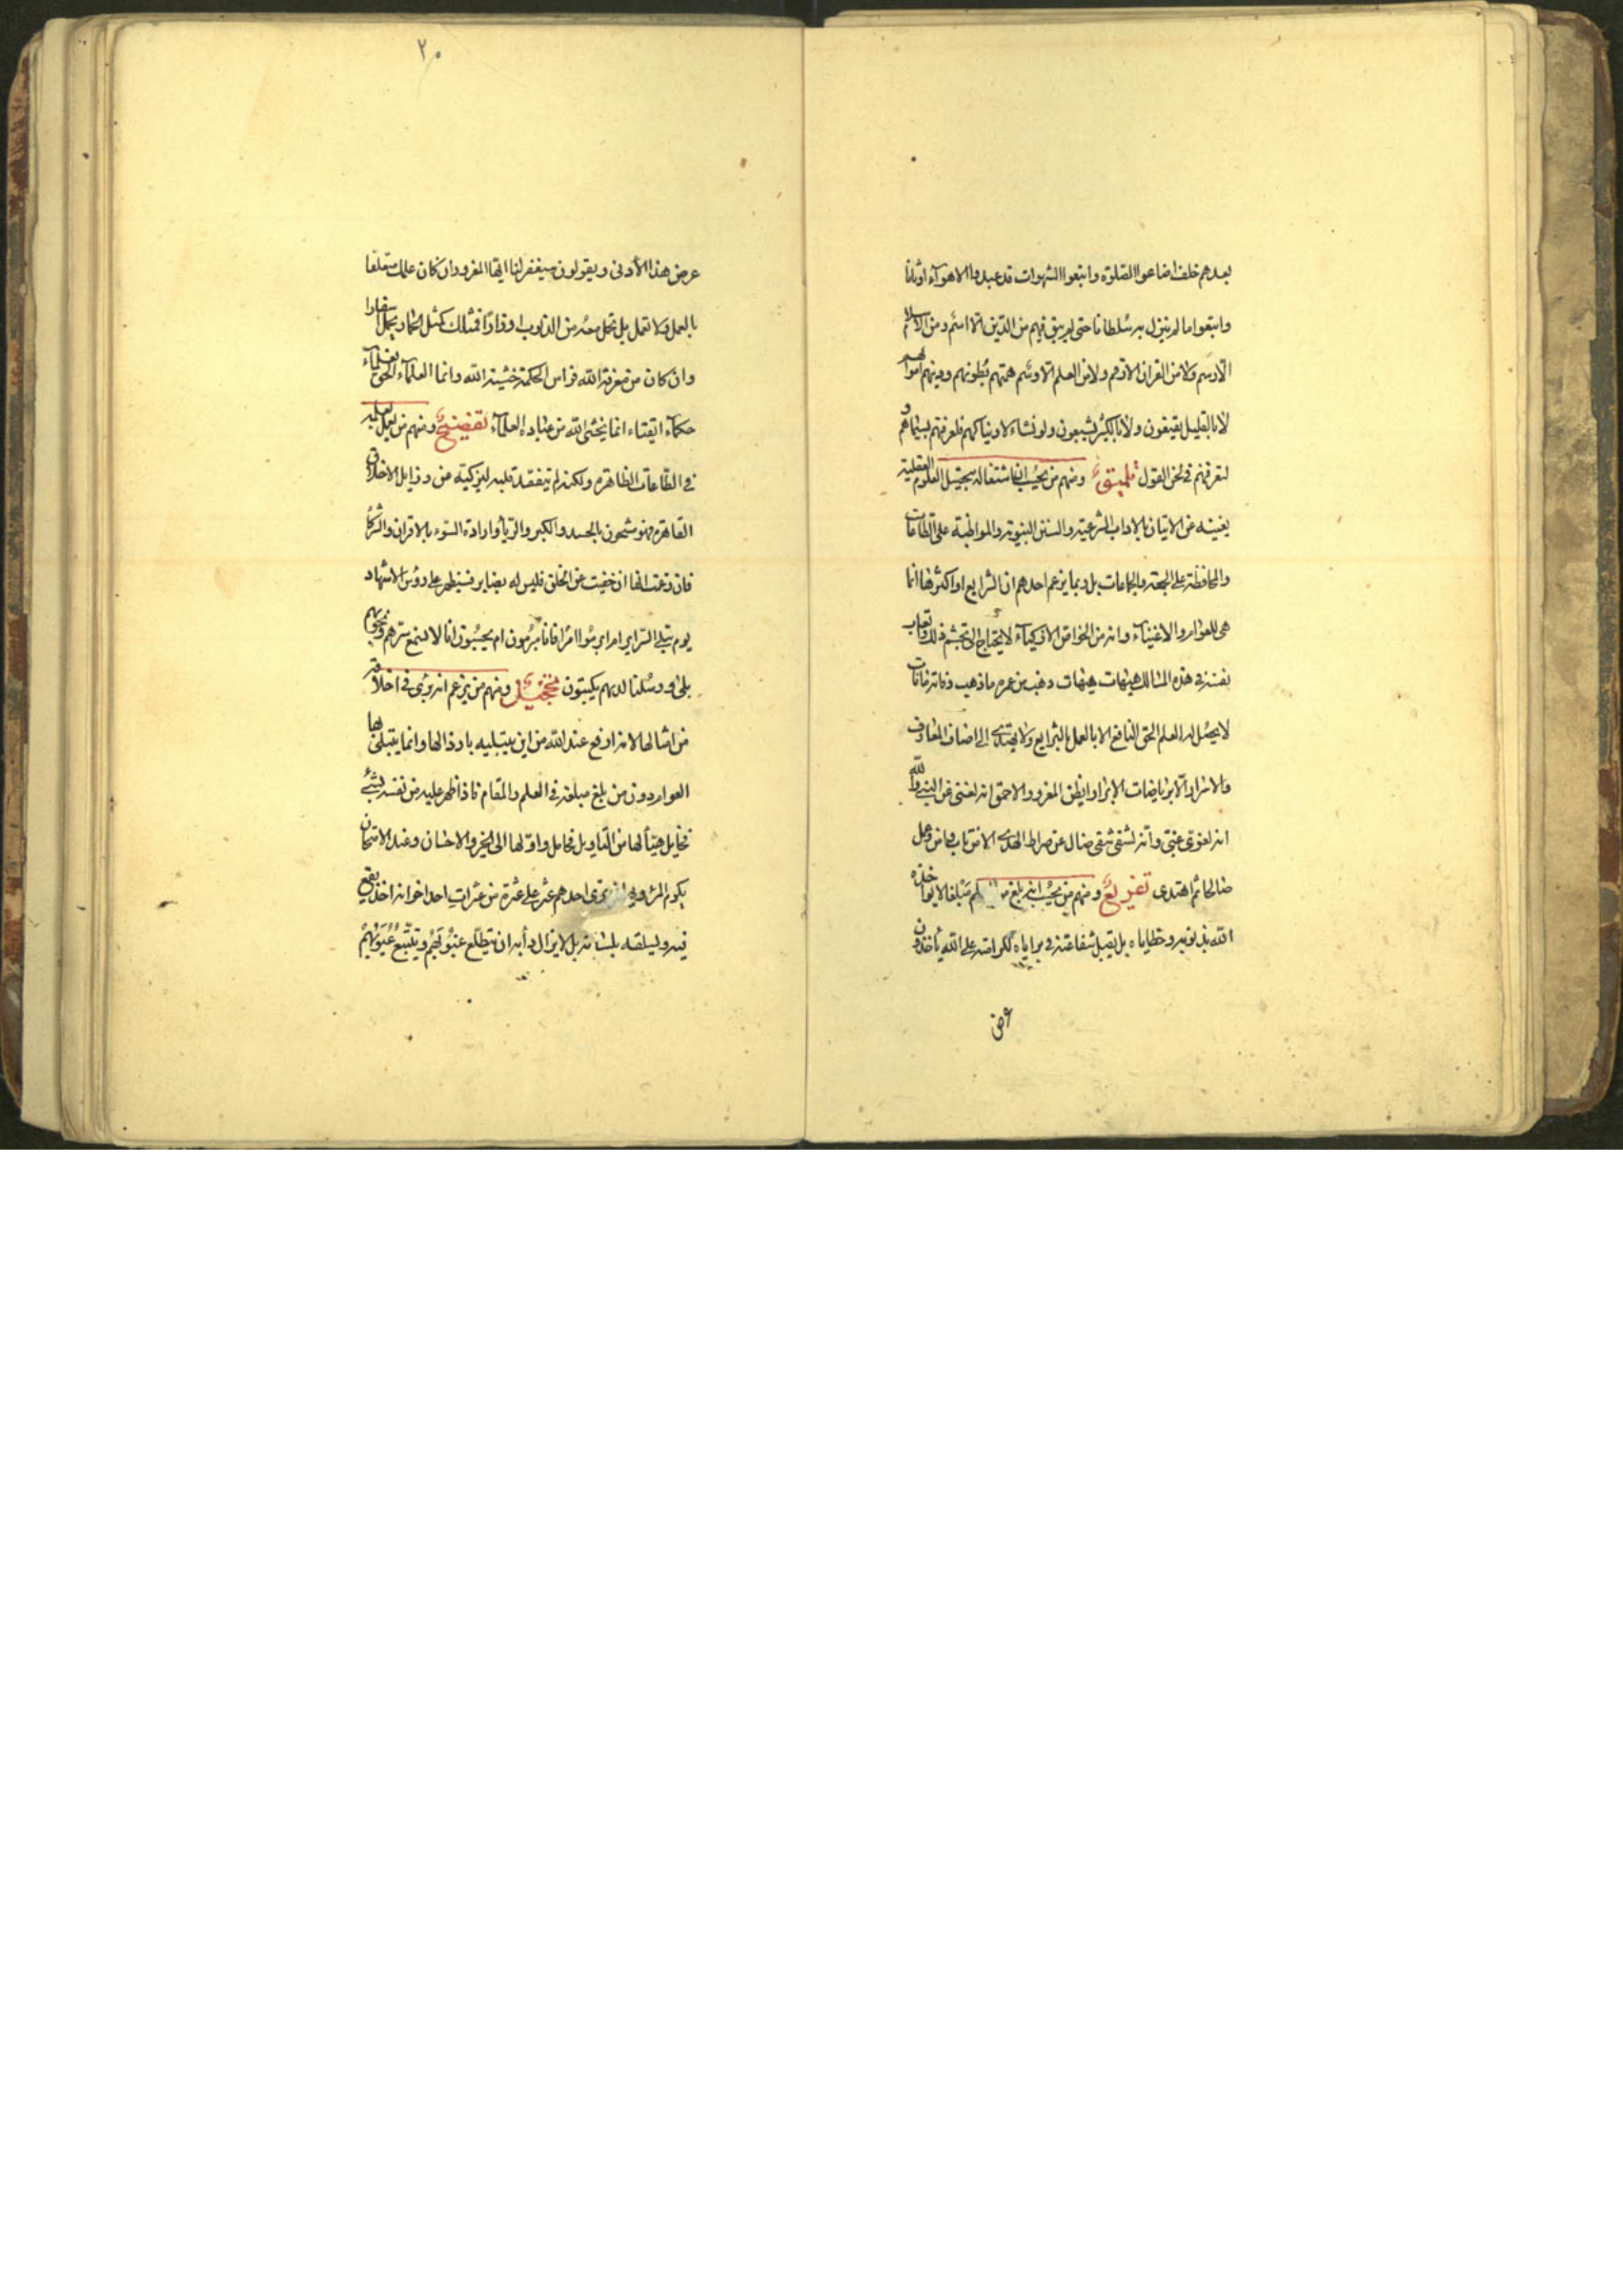 بعدهم خلف اضاعوا الصلوة واتبعوا الشهوات قد عبدوا الاهوآء اوثانا
واتبعوا ما لم ينزل به سلطانا حتى لم يبق فيهم من الدين الا اسم ومن الاسلام
الا رسم ولا من القران الا رقم ولا من العلم الا وسم همتهم بطونهم ودينهم اموالهم
لا بالقليل يقنعون ولا بالكثير يشبعون ولو نشاء لاريناكهم فلعرفتهم بسيماهم و
لتعرفنهم فى لحن القول ومنهم من يحسب ان اشتغاله بتحصيل العلوم العقلية
يغنيه عن الاتيان بالاداب الشرعية والسنن النبوية والمواظبة على الطاعات
والمحافظة على الجمعة والجماعات بل ربما يزعم احدهم ان الشرايع او اكثرها انما
هى للعوام والاغبيآء وانه من الخواص الاذكيآء لا يحتاج الى تجشم ذلك واتعاب
نفسه فى هذه المسالك هيهات هيهات ذهب من عمره ما ذهب وفاته ما فات
لا يحصل له العلم الحق النافع الا بالعمل بالشرايع ولا يهتدى الى اصناف المعارف
والاسرار الا برياضات الابرار ايظن المغرور الاحمق انه لغنى عن النبى والله
انه لغوى غبى وانه لشقى شقى ضال عن صراط الهدى الا من تاب وامن وعمل
صالحا ثم اهتدى تفريع ومنهم من يحسب انه بلغ من العلم مبلغا لا يواخذه
الله بذنوبه وخطاياه بل يقبل شفاعته فى براياه لكرامته على الله ياخذون
عرض
٢٠
عرض هذا الأدنى ويقولون سيغفر لنا ايها المغرور ان كان علمك متعلقا
بالعمل ولا تعمل بل تحمل معه من الذنوب اوزارًا فمثلك كمثل الحمار يحمل اسفارا
وان كان من معرفة الله فراس الحكمة خشية الله وانما العلمآء الحق
حكمآء اتقياء انما يخشى الله من عباده العلمآء تفضيح ومنهم من يعمل بعلمه
فى الطاعات الظاهرة ولكنه لم يتفقد قلبه ليزكيه عن رذايل الاخلاق
القاهرة فهو مشحون بالحسد والكبر والريآ وارادة السوء بالاقران والشركآ
فان زعمت انها ان خفيت عن الخلق فليس له بضاير فستظهر على رؤس الاشهاد
يوم تبلى السراير ام ابرموا امرا فانا مبرمون ام يحسبون انا لا نسمع سرهم ونجويهم
بلى ورسلنا لديهم يكتبون ومنهم من يزعم انه برئ فى اخلاقه
من امثالها لانه ارفع عند الله من ان يبتليه بارذالها وانما يبتلى بها
العوام دون من بلغ مبلغه فى العلم والمقام فاذا ظهر عليه من نفسه شئ
مخايل هيّأ لها من التاويل محامل واوّلها الى الخير والاحسان وعند الامتحان
يكرم المرء او يهان ترى احدهم عثر على عثرة من عثرات احد اخوانه اخذ يقع
فيه ويسلقه بلسانه بل لا يزال دأبه ان يتطلع عيوبهم ويتتبع عيوبهم